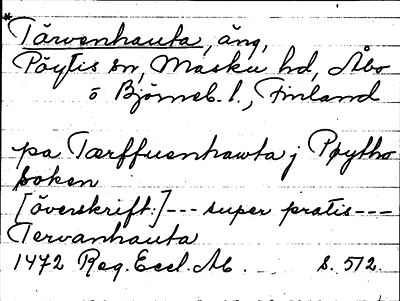 *
Tärvenhauta, äng,
Pöytis sn, Masku hd, Åbo
o Björneb. l., Finland
pa Tærffuenhawta j Pøytho
soken
[överskrift:] --- super pratis ---
Tervanhauta
1472 Reg. Eccl. Ab. s. 512.